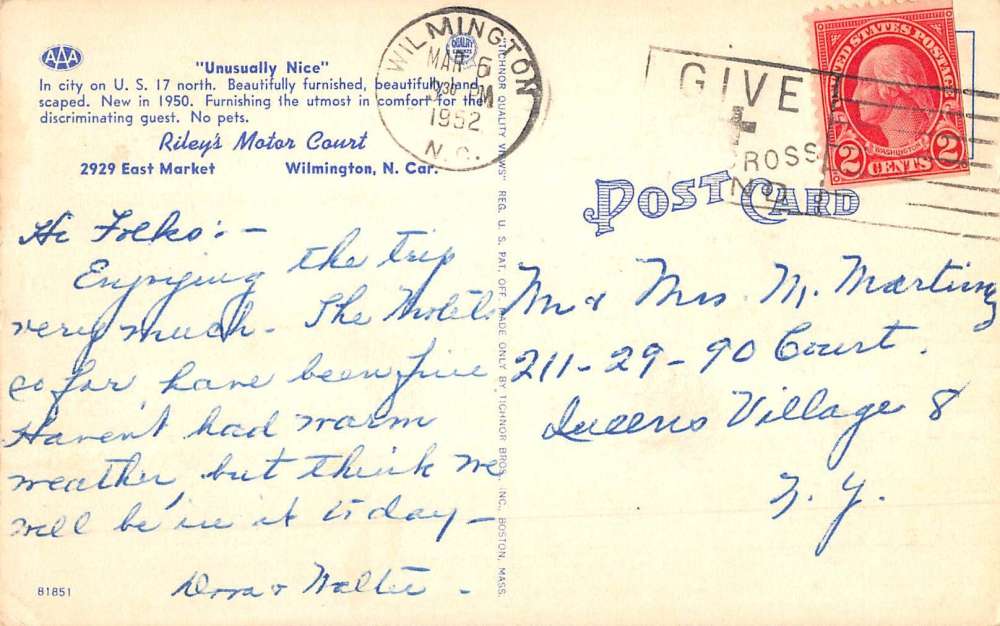 AAA
"Unusually Nice"
In city on U. S. 17 north. Beautifully furnished, beautifully land-
scaped. New in 1950. Furnishing the utmost in comfort for the
discriminating guest. No pets.
Riley's Motor Court
2929 East Market Wilmington, N. Car.
WILMINGTON
MAR 6
PM
1952
N.C.
GIVE
CROSS
UNITED STATES POSTAGE
WASHINGTON
2 CENTS 2
POST CARD
"TICHNOR QUALITY VIEWS" REG. U. S. PAT. OFF. MADE ONLY BY TICHNOR BROS., INC., BOSTON, MASS.
Hi Folks:-
Enjoying the trip
very much- The Motels
so far have been fine
Haven't had warm
weather, but think we
will be in it today-
Dora & Walter.
Mr & Mrs N.
211-29-90 Court.
Queens Village 8
N.Y.
81851